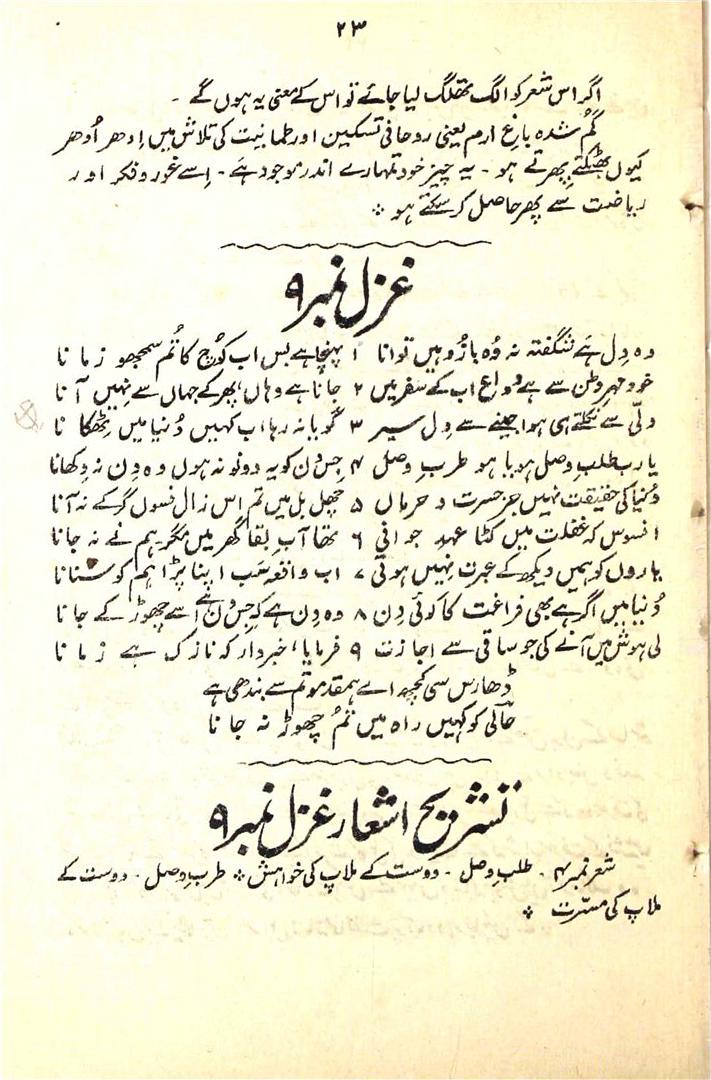 ۲۳
اگر اس شعر کو الگ تھلگ لیا جائے تو اس کے معنی یہ ہوں گے ۔
گم شدہ باغ ارم یعنی روحانی تسکین اور طمانیت کی تلاش میں اِدھر اُدھر
کیوں بھٹکتے پھرتے ہو ۔ یہ چیز خود تمہارے اندر موجود ہے ۔ اِسے غور و فکر اور
ریاضت سے پھر حاصل کر سکتے ہو ؞
غزل نمبر ۹
وہ دِل ہے نہ شگفتہ نہ وُہ بازو ہیں توانا ۱ پہنچا ہے بس اب کُوچ کا تُم سمجھو زمانا
خود مہرِ وطن سے ہے وداع اب کے سفر میں ۲ جانا ہے وہاں، پھر کے جہاں سے نہیں آنا
دلّی سے نکلتے ہی ہوا جینے سے دِل سیر ۳ گویا نہ رہا اب کہیں دُنیا میں ٹھکانا
یا رب طلبِ وصل ہو یا ہو طربِ وصل ۴ جِس دن کو یہ دونو نہ ہوں وہ دِن نہ دِکھانا
دُنیا کی حقیقت نہیں جز حسرت و حرماں ۵ چھل بل میں تم اس زالِ فسوں گر کے نہ آنا
افسوس کہ غفلت میں کٹا عہدِ جوانی ۶ تھا آبِ بقا گھر میں مگر ہم نے نہ جانا
یاروں کو ہمیں دیکھ کے عبرت نہیں ہوتی ۷ اب واقعہ سَب اپنا پڑا ہم کو سُنانا
دُنیا میں اگر ہے بھی فراغت کا کوئی دِن ۸ وہ دِن ہے کہ جِس دن نے اسے چھوڑ کے جانا
لی ہوش میں آنے کی جو ساقی سے اجازت ۹ فرمایا، خبردار کہ نازک ہے زمانا
ڈھارس سی کچھ اے ہمقدمو تم سے بندھی ہے
حالی کو کہیں راہ میں تمُ چھوڑ نہ جانا
تشریح اشعار غزل نمبر ۹
شعر نمبر ۴ ۔ طلبِ وصل ۔ دوست کے ملاپ کی خواہش ؞ طربِ وصل ۔ دوست کے
ملاپ کی مسرت ؞